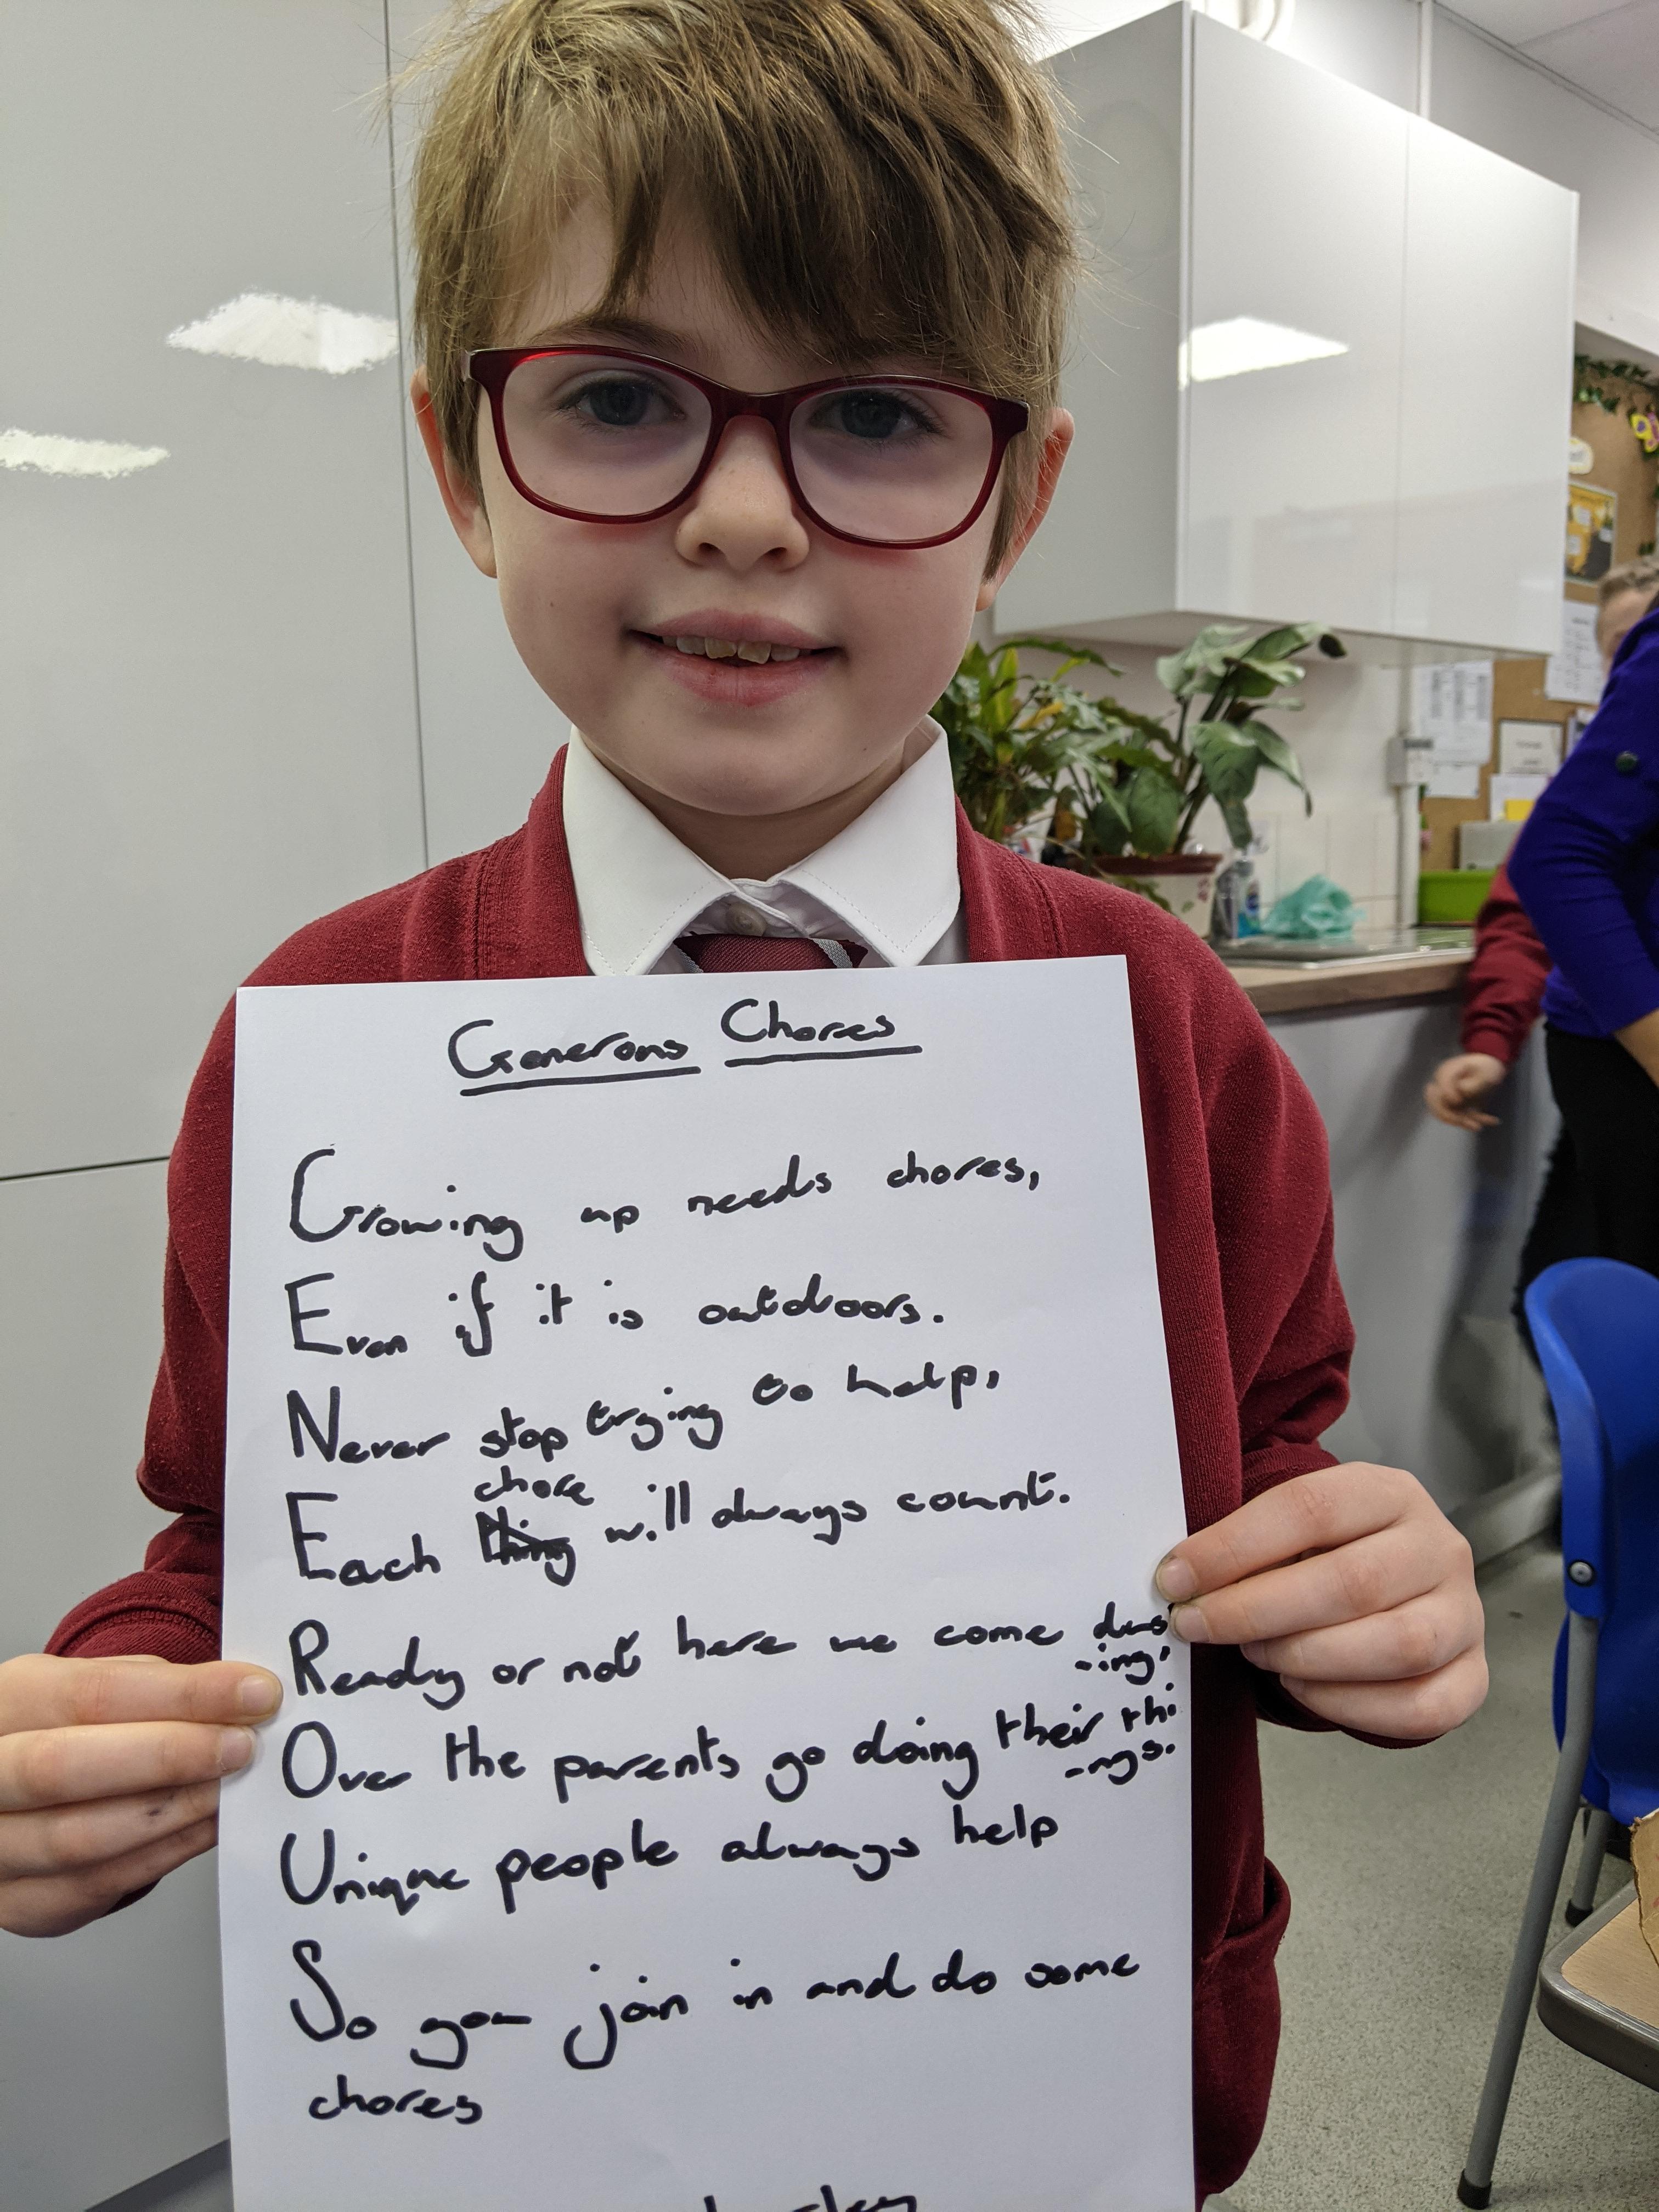 Generous Chores
Growing up needs chores,
Even if it is outdoors.
Never stop trying to help,
chore
Each thing will always count.
Ready or not here we come dus
-ing,
Over the parents go doing their thi
-ngs.
Unique people always help
So you join in and do some
chores